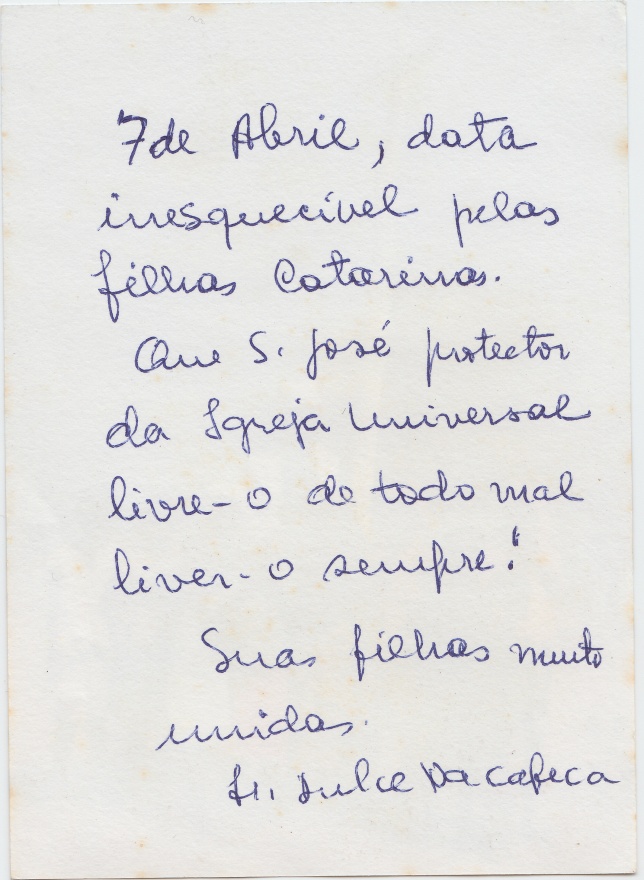 7 de Abril, data
inesquecível pelas
filhas Catarinas.
Que S. José protector
da Igreja Universal
livre-o de todo mal
liver-o sempre!
Suas filhas muito
unidas.
Ir. Dulce